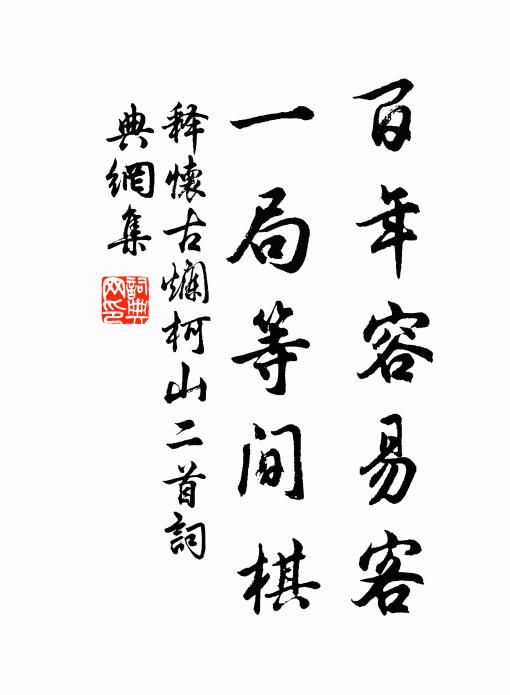 百年容易客
一局等间棋
释怀古爛柯山二首詞
典網集
詞典
网印